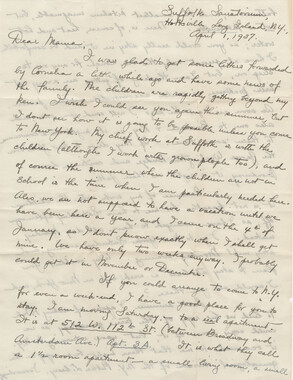 Suffolk Sanatorium
Holtsville, Long Island, N.Y.
April 9, 1937.
Dear Mama,
I was glad to get some letters forwarded
by Cornelia a little while ago and have some news of
the family. The children are rapidly getting beyond my
ken. I wish I could see you again this summer, but
I don't see how it is going to be possible unless you come
to New York. My chief work at Suffolk is with the
children (although I work with grown people too), and
of course the summer when the children are not in
school is the time when I am particularly needed here.
Also, we are not supposed to have a vacation until we
have been here a year and I came on the 4th of
January, so I don't know exactly when I shall get
mine. We have only two weeks anyway. I probably
could get it in November or December.
If you could arrange to come to N.Y.
for even a week-end, I have a good place for you to
stay. I am moving Saturday - to a real apartment -
It is at 512 W. 112th St. (between Broadway and
Amsterdam Ave.) Apt. 2A. It is what they call
a 1½ room apartment - a small living room, a small